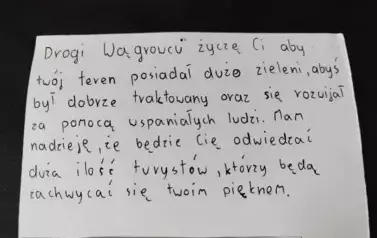 Drogi Wągrowcu życzę Ci aby
twój teren posiadał dużo zieleni, abyś
był dobrze traktowany oraz się rozwijał
za pomocą wspaniałych ludzi. Mam
nadzieję, że będzie Cię odwiedzać
duża ilość turystów, którzy będą
zachwycać się twoim pięknem.